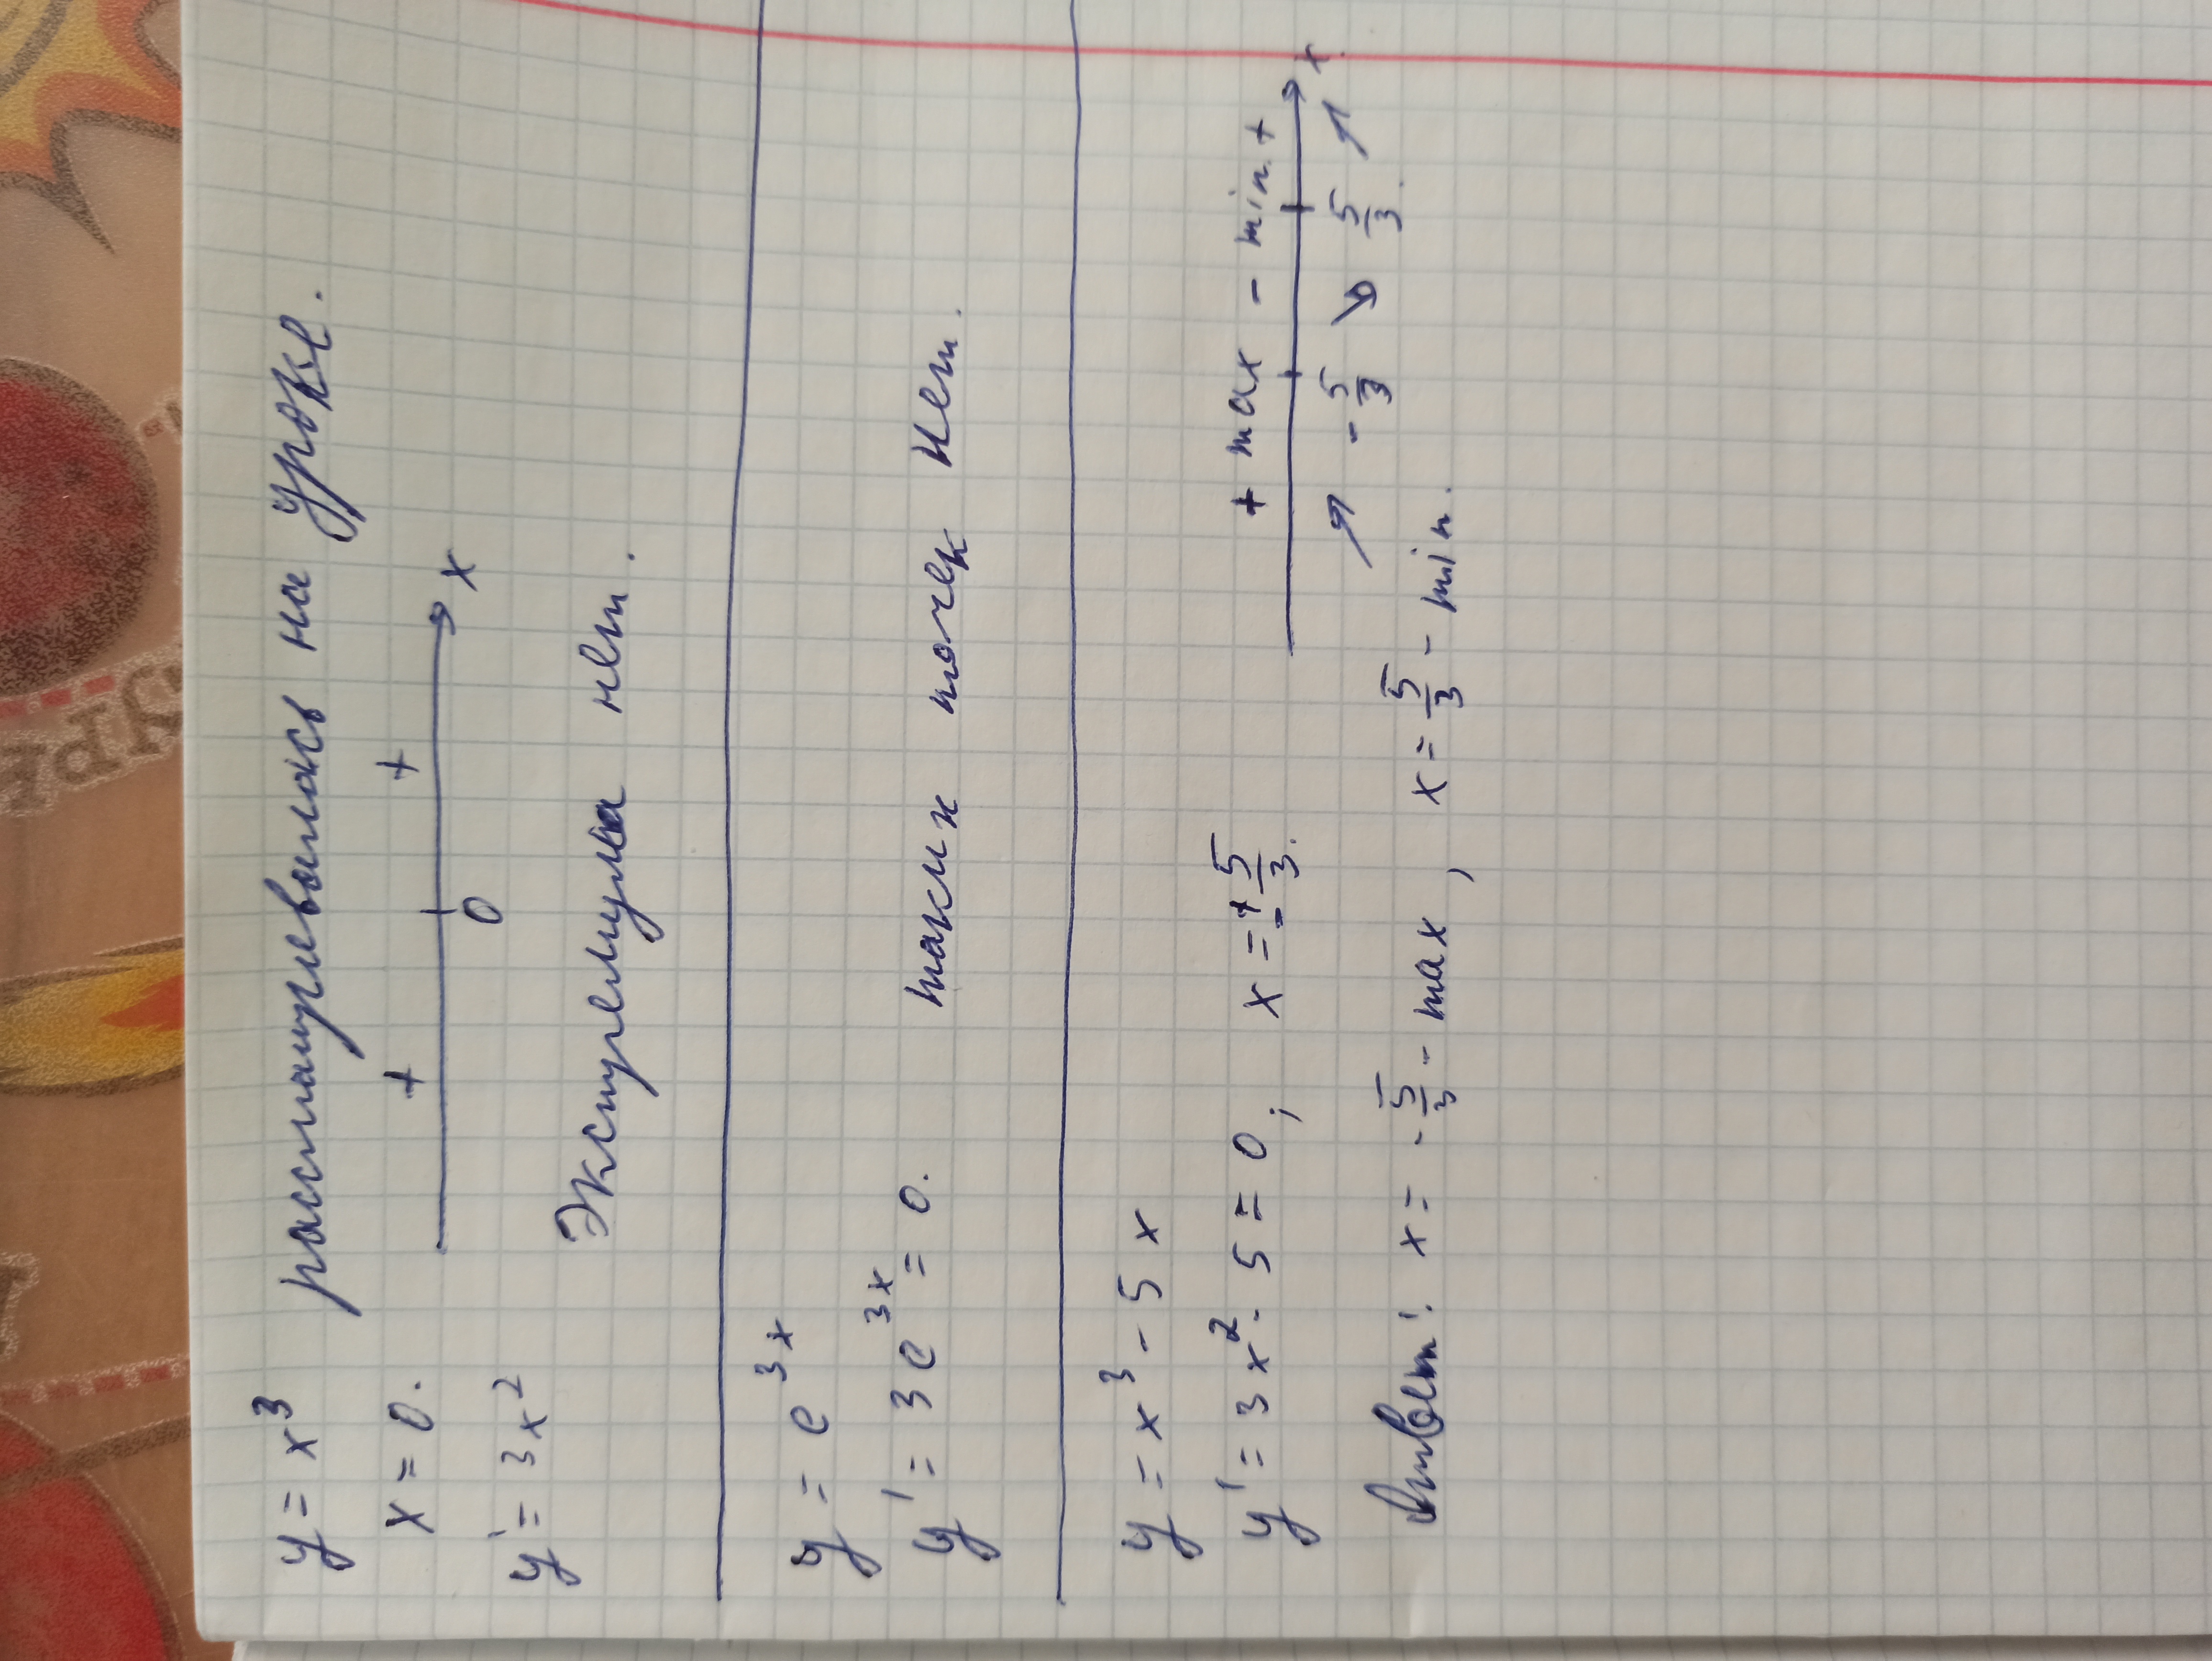 y = x³ рассматривалась на уроке.
x = 0.
+ +
0 x
y' = 3x²
Экстремума нет.
y = e^{3x}
y' = 3e^{3x} = 0. таких точек нет.
y = x³ - 5x
y' = 3x² - 5 = 0; x = ± 5/3.
+ max - min. +
- 5/3 5/3. x
Ответ: x = - 5/3 - max, x = 5/3 - min.